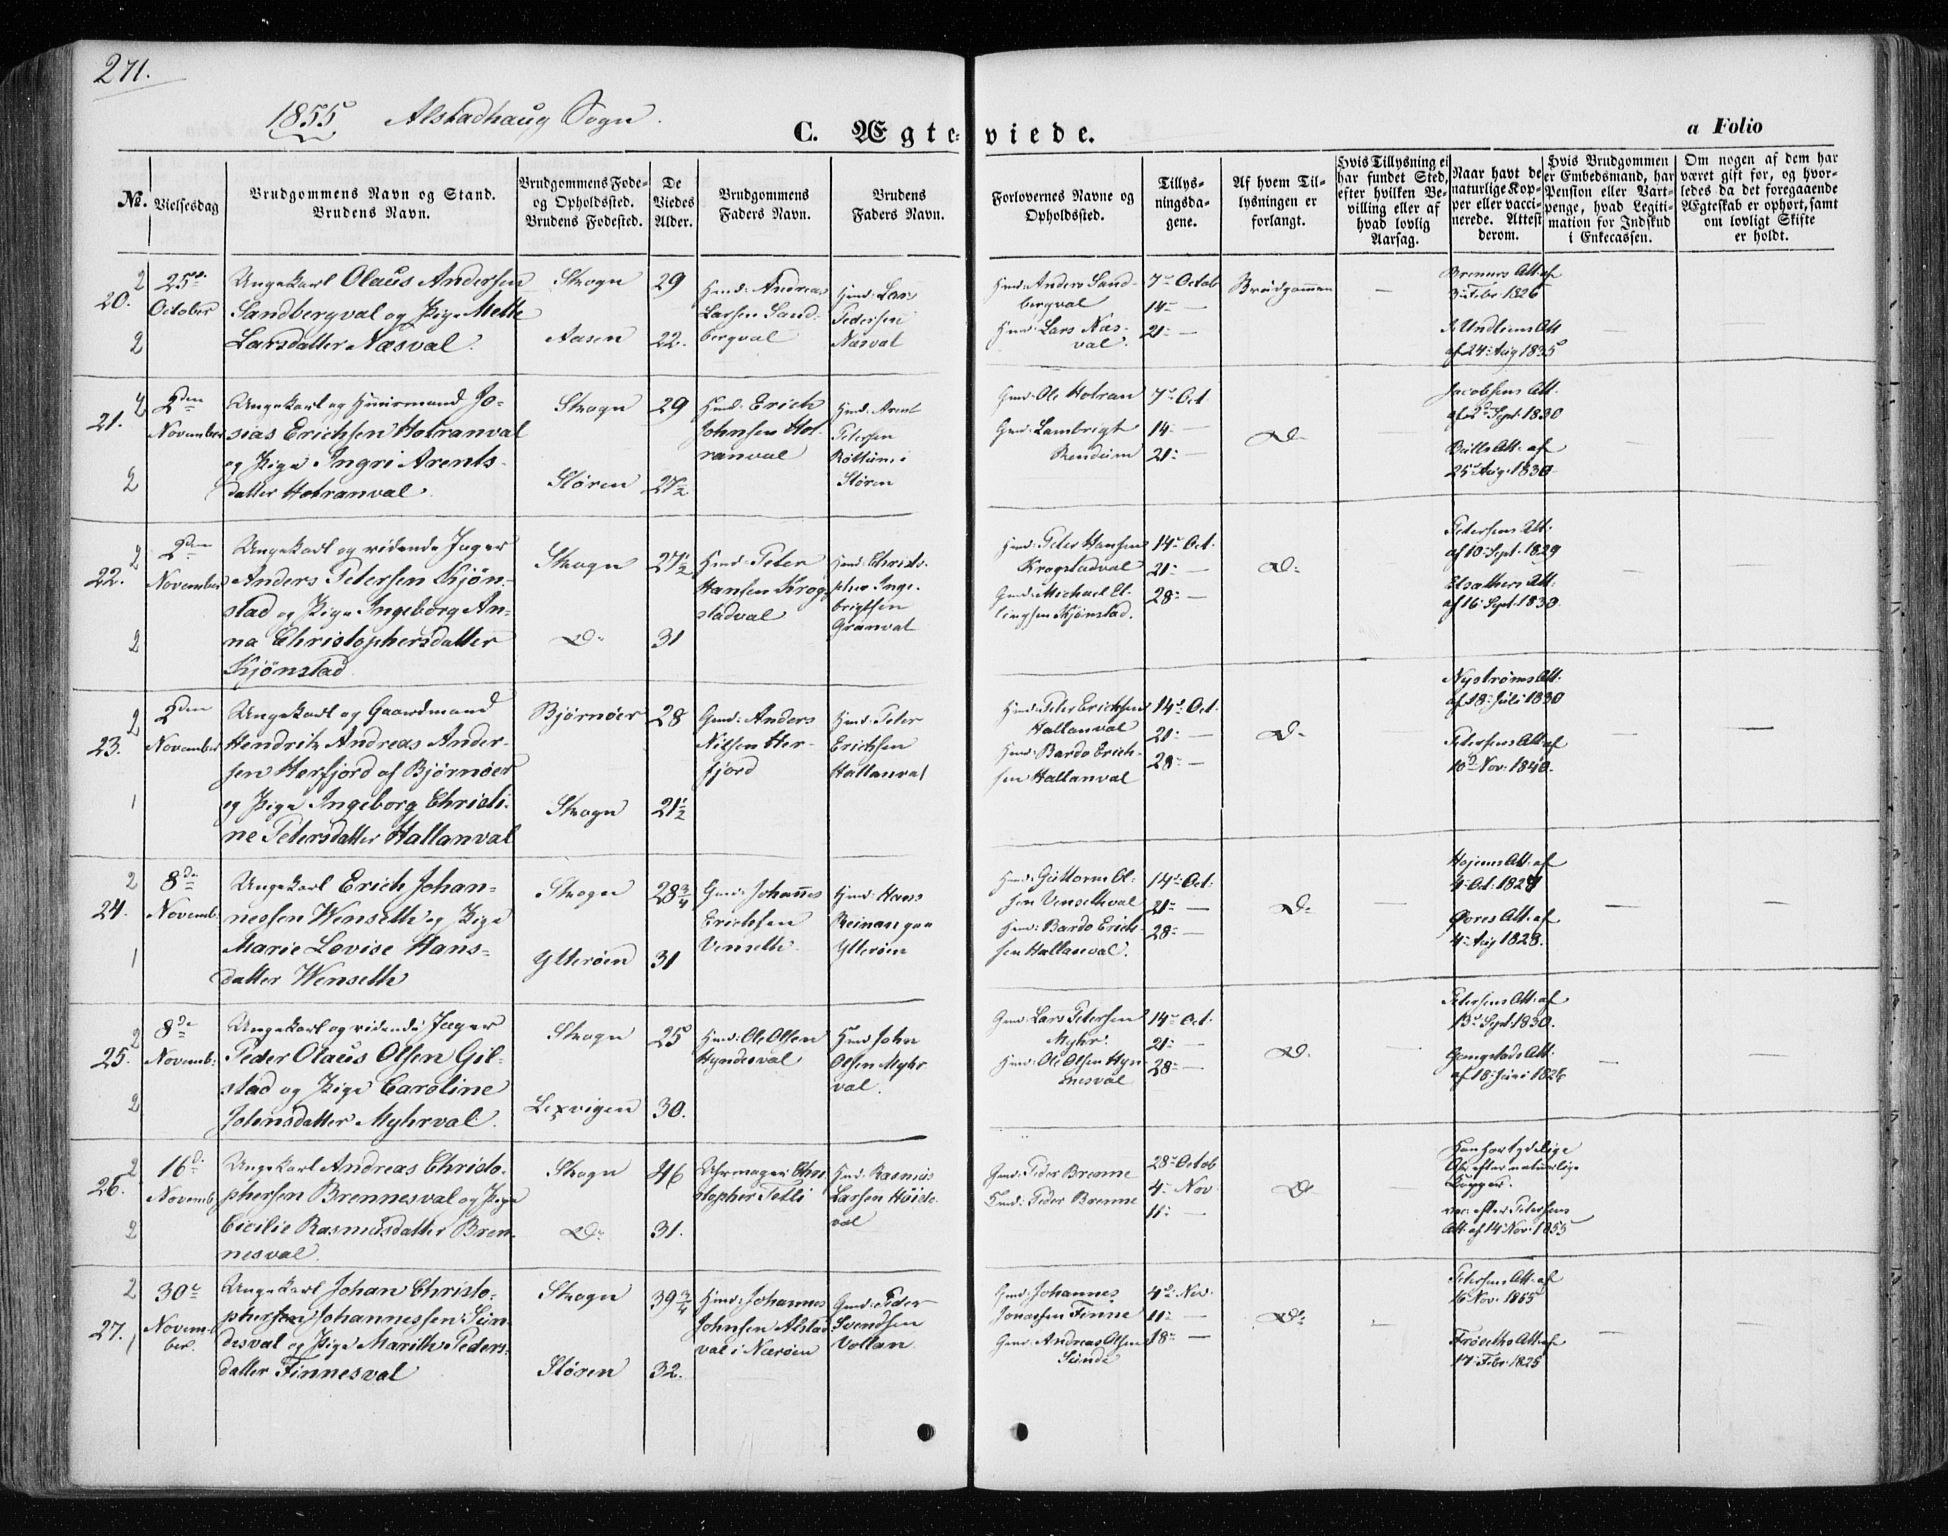 271.
1855 Alstadhaug Sogn.
C. Ægteviede.
a Folio
No.
Vielsesdag
Brudgommens Navn og Stand.
Brudens Navn.
Brudgommens Føde-
og Opholdssted.
Brudens Fødested.
De
Viedes
Alder.
Brudgommens
Faders Navn.
Brudens
Faders Navn.
Forlovernes Navne og
Opholdssted.
Tillys-
ningsda-
gene.
Af hvem Til-
lysningen er
forlangt.
Hvis Tillysning ei
har fundet Sted,
efter hvilken Be-
villing eller af
hvad lovlig
Aarsag.
Naar havt de
naturlige Kop-
per eller vacci-
nerede. Attest
derom.
Hvis Brudgommen
er Embedsmand, har
Pension eller Vart-
penge, hvad Legiti-
mation for Indskud
i Enkecassen.
Om nogen af dem har
været gift før, og hvor-
ledes da det foregaaende
Ægteskab er ophørt, samt
om lovligt Skifte
er holdt.
20.
2
2
25de
October
Ungekarl Olaus Andersen
Sandbergval og Pige Mette
Larsdatter Næsval.
Skogn
Aasen
29
22.
Hmd: Andreas
Larsen Sand-
bergval
Hmd: Lars
Pedersen
Næsval
Hmd: Anders Sand-
bergval
Hmd: Lars Næs-
val.
7de Octob
14 —
21 —
Brudgommen
—
Att af
3 Febr. 1826
Att
af 24 Aug 1835
21.
2
2
2den
November
Ungekarl og Huusmand Jo-
sias Erichsen Hotranval
og Pige Ingri Arents-
datter Hotranval.
Skogn
Støren
29
27½
Hmd: Erich
Johnsen Hot-
ranval
Hmd: Arent
Petersen
i
Støren
Gmd: Ole Hotran
Gmd: Lambrigt
Rendum
7de Oct
14 —
21 —
Do
—
Jacobsens Att.
af 2 Sept. 1830
Att. af
25 Aug. 1830
22.
2
2
2den
November
Ungekarl og ridende Jæger
Anders Petersen Kjøn-
stad og Pige Ingeborg An-
na Christophersdatter
Kjønstad
Skogn
Do
27½
31
Hmd: Peter
Hansen Krog-
stadval
Hmd: Christo-
pher Inge-
brigtsen
Granval
Hmd: Peter Hansen
Krogstadval
Gmd: Michael El-
lingsen Kjønstad.
14de Oct.
21 —
28 —
Do
—
Petersens Att.
af 10 Sept. 1829
Elsathers Att.
af 16 Sept. 1830.
23.
2
1
2den
November
Ungekarl og Gaardmand
Hendrik Andreas Ander-
sen Hærfjord af Bjørnøer
og Pige Ingeborg Christi-
ne Petersdatter Hallanval
Bjørnøer
Skogn
28
21½
Gmd: Anders
Nilsen Hær-
fjord
Hmd: Peter
Erichsen
Hallanval
Hmd: Peter Erichsen
Hallanval
Hmd: Bardo Erich-
sen Hallanval
14de Oct.
21 —
28 —
Do
—
Nystrøms Att.
af 18 Juli 1830
Petersens Att. af
10 Nov. 1840.
24.
2
1
8de
Novemb.
Ungekarl Erich Johan-
nessen Wenseth og Pige
Marie Lovise Hans-
datter Wenseth
Skogn
Ytterøen
28¾
31
Gmd: Johannes
Erichsen
Venseth
Hmd: Hans
Ytterøen
Hmd: Guttorm Ol-
sen Vensethval
Hmd: Bardo Erich-
sen Hallanval.
14de Oct.
21 —
28 —
Do
—
Hojems Att. af
4 Oct. 1827
Øvres Att. af
4 Aug 1828.
25.
2
2
8de
Novemb:
Ungekarl og ridende Jæger
Peder Olaus Olsen Gil-
stad og Pige Caroline
Johnsdatter Myhrval.
Skogn
Lexvigen
25
30.
Hmd: Ole Olsen
Hyndesval
Hmd John
Olsen Myhr-
val.
Gmd: Lars Petersen
Myhr.
Hmd: Ole Olsen Hyn-
nesval
14de Oct.
21 —
28 —
Do
—
Petersens Att. af
13 Sept 1830.
Gangstads Att.
af 18 Juni 1826
26.
2
2
16de
Novemb.
Ungekarl Andreas Christo-
phersen Brennesval og Pige
Cicilie Rasmusdatter Bren-
nesval.
Skogn
Do
46
31.
Uhrmager Chri-
stopher Tetli
Hmd: Rasmus
Larsen Høisle-
val
Gmd: Peder Brenne
Hmd: Peder Brenne
28de Octob
4 Nov.
11 —
Do
—
Han har tydelige
Ar efter naturlige
Kopper.
vac: efter Petersens
Att. af 14 Nov. 1855
27.
2
1
30te
Novem-
ber.
Ungekarl Johan Christo-
phersen Johannessen Sun-
desval og Pige Marith Peders-
datter Finnesval
Skogn
Støren
39¾
32.
Hmd: Johannes
Johnsen Alstad-
val i Nærøen
Gmd: Peder
Svendsen
Vollan
Gmd: Johannes
Jonassen Finne
Gmd: Andreas Olsen
Sunde
4de Nov.
11 —
18 —
Do
—
Petersens Att. af
16 Nov. 1855
Frøseths Att. af
17 Febr. 1825